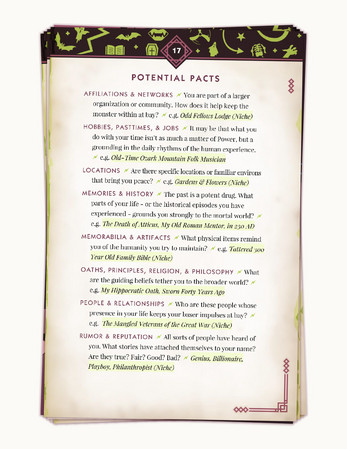 17
POTENTIAL PACTS
AFFILIATIONS & NETWORKS You are part of a larger
organization or community. How does it help keep the
monster within at bay? e.g. Odd Fellows Lodge (Niche)
HOBBIES, PASTTIMES, & JOBS It may be that what you
do with your time isn't as much a matter of Power, but a
grounding in the daily rhythms of the human experience.
e.g. Old-Time Ozark Mountain Folk Musician
LOCATIONS Are there specific locations or familiar environs
that bring you peace? e.g. Gardens & Flowers (Niche)
MEMORIES & HISTORY The past is a potent drug. What
parts of your life - or the historical episodes you have
experienced - grounds you strongly to the mortal world?
e.g. The Death of Atticus, My Old Roman Mentor, in 230 AD
MEMORABILIA & ARTIFACTS What physical items remind
you of the humanity you try to maintain? e.g. Tattered 300
Year Old Family Bible (Niche)
OATHS, PRINCIPLES, RELIGION, & PHILOSOPHY What
are the guiding beliefs tether you to the broader world?
e.g. My Hippocratic Oath, Sworn Forty Years Ago
PEOPLE & RELATIONSHIPS Who are these people whose
presence in your life keeps your baser impulses at bay?
e.g. The Mangled Veterans of the Great War (Niche)
RUMOR & REPUTATION All sorts of people have heard of
you. What stories have attached themselves to your name?
Are they true? Fair? Good? Bad? Genius, Billionaire,
Playboy, Philanthropist (Niche)